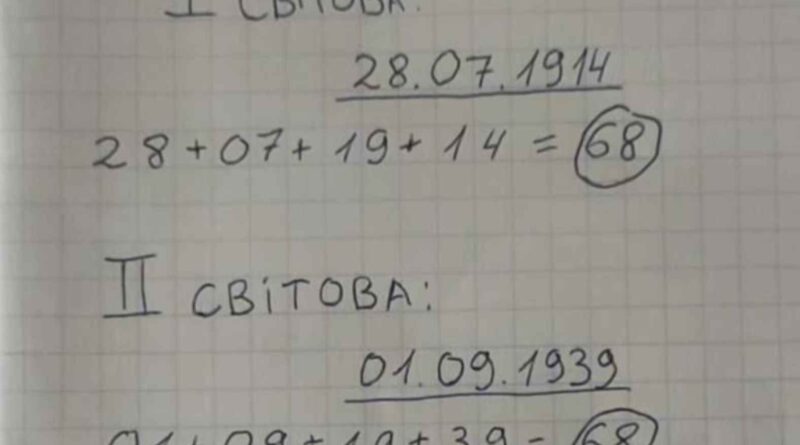 I СВІТОВА:
28.07.1914
28+07+19+14 = 68
II СВІТОВА:
01.09.1939
01+09+19+39 = 68